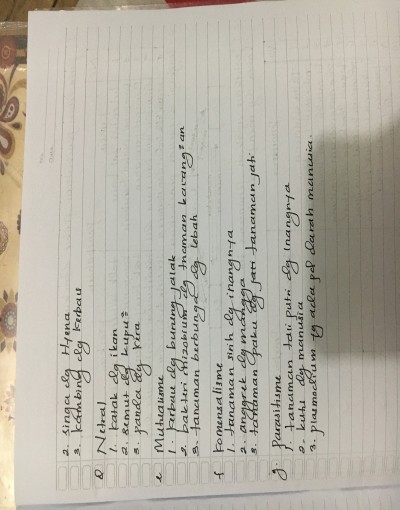 2. singa dg Hyena
3. kambing dg kerbau
d Netral
1. katak dg ikan
2. semut dg kupu²
3. panda dg kera
e Mutualisme
1. kerbau dg burung jalak
2. bakteri rizobium dg tnaman kacang²an
3. tanaman berbunga dg lebah
f Komensalisme
1. tanaman sirih dg inangnya
2. anggrek dg mangga
3. tanaman paku dg jati tanaman jati.
g. parasitisme
1. tanaman tali putri dg inangnya
2. kutu dg manusia
3. plasmodium yg ada pd darah manusia.